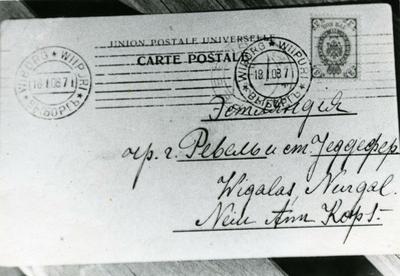 UNION POSTALE UNIVERSELLE
CARTE POSTALE
WIBORG ★ WIIPURI ★ ВЫБОРГЪ
18 I 08 7 I
WIBORG ★ WIIPURI ★ ВЫБОРГЪ
18 I 08 7 I
Эстляндия
г. Ревель и ст. 
Wigalas, Nurgal.
Ann Kops.